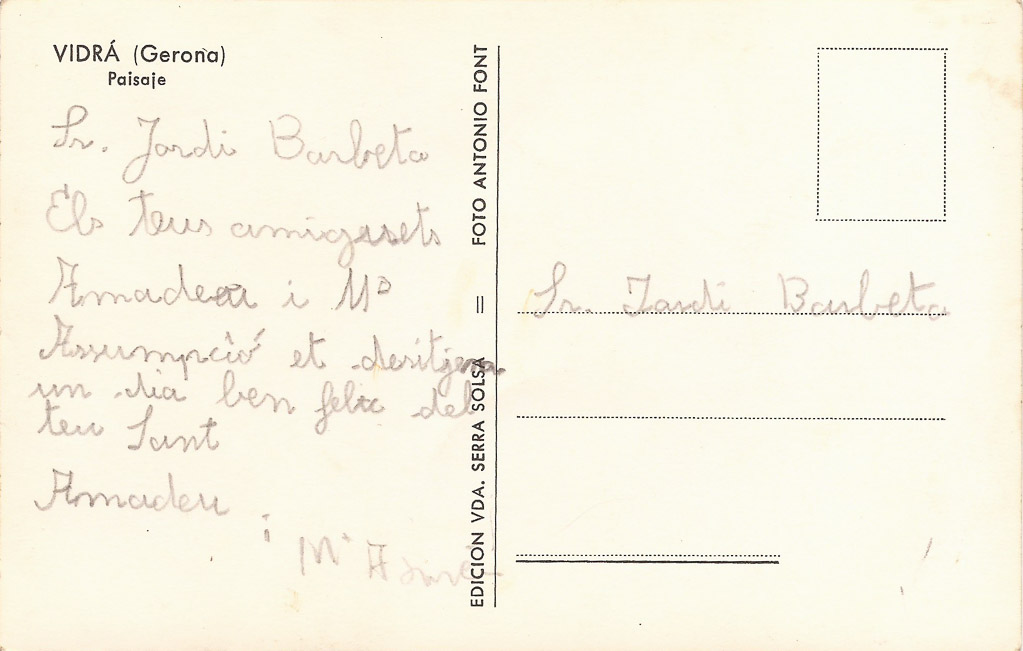 VIDRÁ (Gerona)
Paisaje
Sr. Jordi Barbeta
Els teus amiguets
Amadeu i Mª
Assumpció et desitjem
un dia ben felic del
teu Sant
Amadeu
i
Mª
EDICION VDA. SERRA SOLSA = FOTO ANTONIO FONT
Sr. Jordi Barbeta